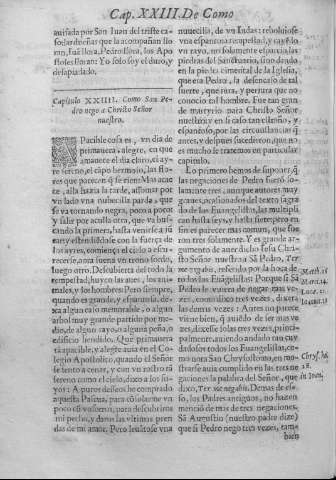 Cap. XXIII. De Como
auisada por San Juan del triste ca-
so
la ran, Fuè llora, Pedro llora, los Apo-
stoles lloran: Yo solo soy el duro, y
desapiadado.
Capitulo XXIIII. Como San Pe-
dro nego a Christo Señor
nuestro.
Apacible cosa es, vn dia de
primauera, alegre, en que
amanece el dia claro, el ay-
re sereno, el capo hermoso, las flo-
res que parecen q̃ se rien: Mas aun
te, a la hazia la tarde, assomar por
vn lado vna nubecilla parda, que
se va tornando negra, poco a poco
y salir por acullà otra, que va bus-
cando la primera, hasta venirse a jũ
tar: y estendiendose con la fuerça de
los ayres, comiença el cielo a escu-
recerse, aora suena vn trueno sordo,
luego otro. Descubierta del todo la
tempestad, huyen las aues, los ani-
males, y los hombres: Pero siempre
quando es grande, y espantosa, de-
xa algun caso memorable, o algun
arbol muy grande partido por me-
dio, de algun rayo, o alguna peña, o
edificio hendido. Que primauera
tã apacible, y alegre auia en el Co-
legio Apostolico, quando el Señor
se sento a cenar, y con vn rostro tã
sereno como el cielo, dixo a los su-
yos: A puros desseos he comprado
aquesta Pascua, para cõsolarme vn
poco cõ vosotros, para descubriros
mi pecho, y daros las vltimas pren
das de mi amor. Pero leuãtose vna
nuuecilla, de vn Iudas: reboluiose
vna espantosa tempestad, y cayẽdo
vn rayo, no solamente el parecia las
piedras del Sanctuario, sino dendo
en la piedra cimental de la Iglesia,
que era Pedro, la desencasò de tal
suerte, que jura, y perjura que no
conocio tal hombre. Fue tan gran-
de martyrio para Christo Señor
nuestro, y en si caso tan estraño, y
espantoso, por las circunstancias q̃
antes, y despues sucedieron, que no
es mucho se tratassen en particular
capitulo.
Lo primero hemos de suponer, q̃
las negaciones de Pedro fuerõ so-
lamente tres, aunque autores muy
graues, ocasionados del texto sagra
do de los Euangelistas, las multipli
can hasta seys, y hasta siete: pero en
fin es parecer mas comun, que fue
ron tres solamente. Y es grande ar-
gumento de auer dicho Iesu Chris-
to Señor nuestro a Sã Pedro, Ter
me negabis, referido por la boca de
todos los Euãgelistas: Porque si Sã
Pedro le vuiera de negar mas ve-
zes, como dixo tres vezes, dixera
las demas vezes: Y aun no parece
viene bien, q̃ auiẽdo de ser mas ve
zes, dixesse solas tres vezes, princi-
palmente, auiendo andado tan cuy
dadosos todos los Euangelistas, co-
mo nota San Chrysostomo, en mo-
strarse auia cumplido en las tres ne
gaciones la palabra del Señor, que
dixo, Ter me negabis. Demas de es-
so, los Padres antiguos, no hazen
mencio de mas de tres negaciones.
Sã Augustin (nuestro padre dize)
que si Pedro nego tres vezes, tam-
bien
Math. 26
Marc. 14.
Luc. 22.
Ioan. 18
Chrys. ho.
in Ioan.